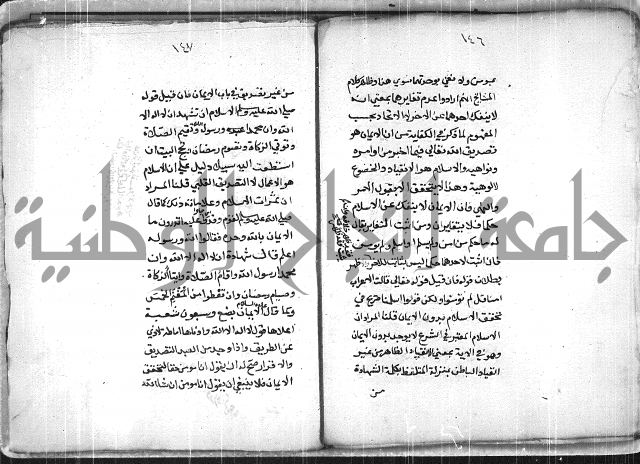 ١٤٦
بمؤمن ولا نعني بوحدتهما سوى هذا وظاهر كلام
المشايخ انهم ارادوا عدم تغايرهما بمعنى انه
لا ينفك احدهما عن الاخر لا الاتحاد بحسب
المفهوم لما ذكر في الكفاية من ان الايمان هو
تصديق الله تعالى فيما اخبر من اوامره
ونواهيه والاسلام هو الانقياد والخضوع
لالوهيته وهذا لا يتحقق الا بقبول الامر
والنهي فان الايمان لا ينفك عن الاسلام
حكما فلا يتغايران ومن اثبت التغاير يقال
له ما حكم من امن ولم يسلم او اسلم ولم يؤمن
فان اثبت لاحدهما حكما ليس بثابت للاخر ظهر
بطلان قوله فان قيل قوله تعالى قالت الاعراب
امنا قل لم تؤمنوا ولكن قولوا اسلمنا صريح في
تحقق الاسلام بدون الايمان قلنا المراد ان
الاسلام المعتبر في الشرع لا يوجد بدون الايمان
وهو في الاية بمعنى الانقياد الظاهر من غير
انقياد الباطن بمنزلة المتلفظ بكلمة الشهادة
من
١٤٧
من غير تصديق في باب الايمان فان قيل قوله
صلى الله عليه وسلم الاسلام ان تشهد ان لا اله الا
الله وان محمدا عبده ورسوله وتقيم الصلاة
وتؤتي الزكاة وتصوم رمضان وتحج البيت ان
استطعت اليه سبيلا دليل على ان الاسلام
هو الاعمال لا التصديق القلبي قلنا المراد
ان ثمرات الاسلام وعلاماته ذلك كما قال
صلى الله عليه وسلم لقوم وفدوا عليه اتدرون ما
الايمان بالله وحده فقالوا الله ورسوله
اعلم قال شهادة ان لا اله الا الله وان
محمدا رسول الله واقام الصلاة وايتاء الزكاة
وصيام رمضان وان تعطوا من المغنم الخمس
وكما قال الايمان بضع وسبعون شعبة
اعلاها قول لا اله الا الله وادناها اماطة الاذى
عن الطريق واذا وجد من العبد التصديق
والاقرار صح له ان يقول انا مؤمن حقا لتحقق
الايمان ولا ينبغي ان يقول انا مؤمن ان شاء الله
جامعة النجاح الوطنية